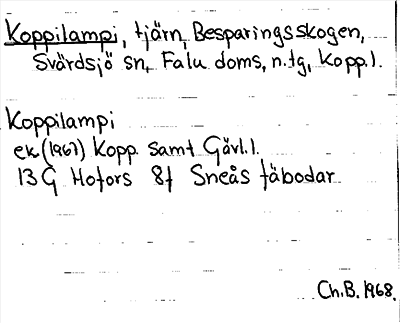 Koppilampi, tjärn, Besparingsskogen,
Svärdsjö sn, Falu doms, n.tg, Kopp.l.
Koppilampi
ek (1967) Kopp. samt Gävl.l.
13G Hofors 8f Sneås fäbodar
Ch.B. 1968.